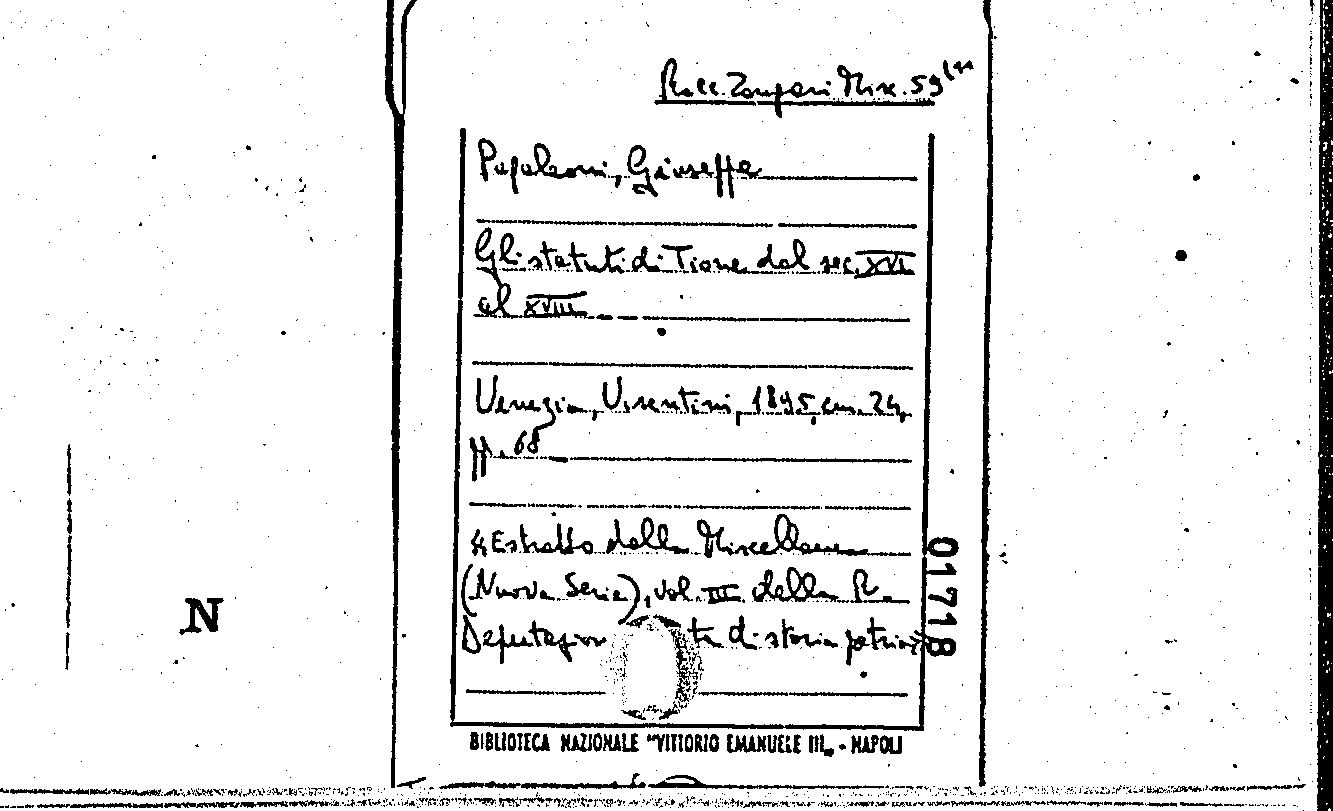 Racc. Zangari Misc. 59
Papaleoni, Giuseppe
Gli statuti di Tione dal sec. XVI
al XVIII
Venezia, Visentini, 1895, cm. 24,
pp. 68
"Estratto dalla Miscellanea
(Nuova Serie), vol. III della R.
Deputazion ta di storia patria"
01718
N
BIBLIOTECA NAZIONALE "VITTORIO EMANUELE III„ - NAPOLI